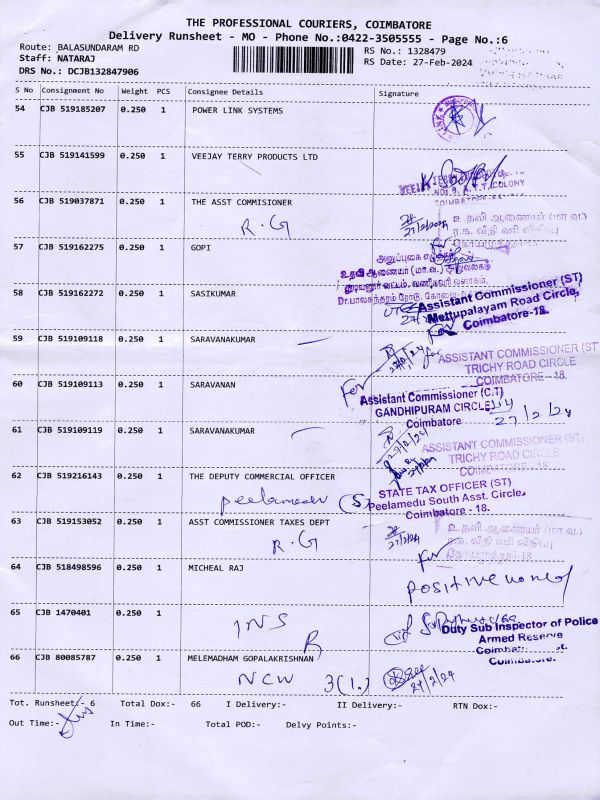 THE PROFESSIONAL COURIERS, COIMBATORE
Delivery Runsheet - MO - Phone No.:0422-3505555 - Page No.:6
Route: BALASUNDARAM RD
RS No.: 1328479
Staff: NATARAJ
RS Date: 27-Feb-2024
DRS No.: DCJB132847906
S No Consignment No Weight PCS Consignee Details Signature
54 CJB 519185207 0.250 1 POWER LINK SYSTEMS
55 CJB 519141599 0.250 1 VEEJAY TERRY PRODUCTS LTD
56 CJB 519037871 0.250 1 THE ASST COMMISIONER
R.G
27/2/24
உதவி ஆணையர் (மா.வ.)
57 CJB 519162275 0.250 1 GOPI
உதவி ஆணையர் (மா.வ.)
58 CJB 519162272 0.250 1 SASIKUMAR
Assistant Commissioner (ST)
Mettupalayam Road Circle,
Coimbatore-18.
For
59 CJB 519109118 0.250 1 SARAVANAKUMAR
for
ASSISTANT COMMISSIONER (ST
TRICHY ROAD CIRCLE
COIMBATORE - 18.
60 CJB 519109113 0.250 1 SARAVANAN
For
Assistant Commissioner (C.T)
GANDHIPURAM CIRCLE
Coimbatore
27/2/24
61 CJB 519109119 0.250 1 SARAVANAKUMAR
27/2/24
ASSISTANT COMMISSIONER (ST)
TRICHY ROAD CIRCLE
COIMBATORE - 18.
62 CJB 519216143 0.250 1 THE DEPUTY COMMERCIAL OFFICER
peelamedu (S)
STATE TAX OFFICER (ST)
Peelamedu South Asst. Circle,
Coimbatore - 18.
63 CJB 519153052 0.250 1 ASST COMMISSIONER TAXES DEPT
R.G
27/2/24
உதவி ஆணையர் (மா.வ.)
For
64 CJB 518498596 0.250 1 MICHEAL RAJ
65 CJB 1470401 0.250 1
INS
R
Duty Sub Inspector of Police
Armed Reserve
Coimbatore.
66 CJB 80085787 0.250 1 MELEMADHAM GOPALAKRISHNAN
NCW 3(1.)
27/2/24
Tot. Runsheet:- 6 Total Dox:- 66 I Delivery:- II Delivery:- RTN Dox:-
Out Time:- In Time:- Total POD:- Delvy Points:-